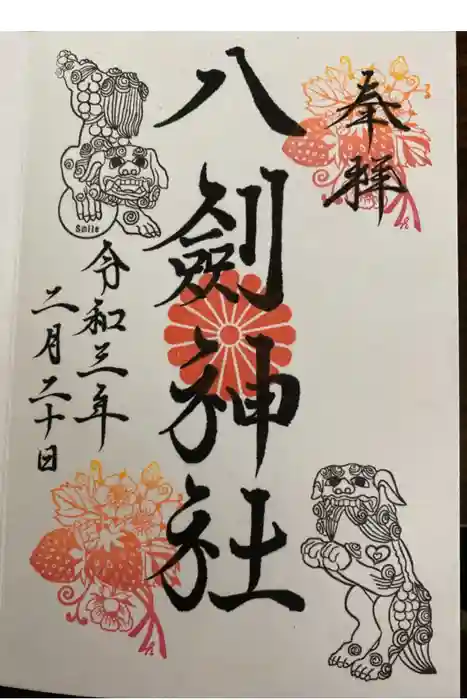 奉拝
八劔神社
令和三年
二月二十日
Smile